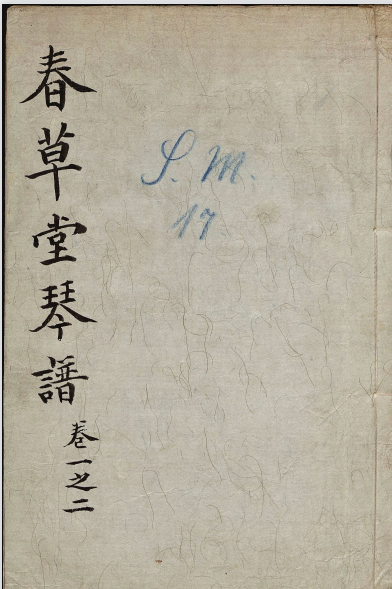 春草堂琴譜
卷一之二
S. M.
17